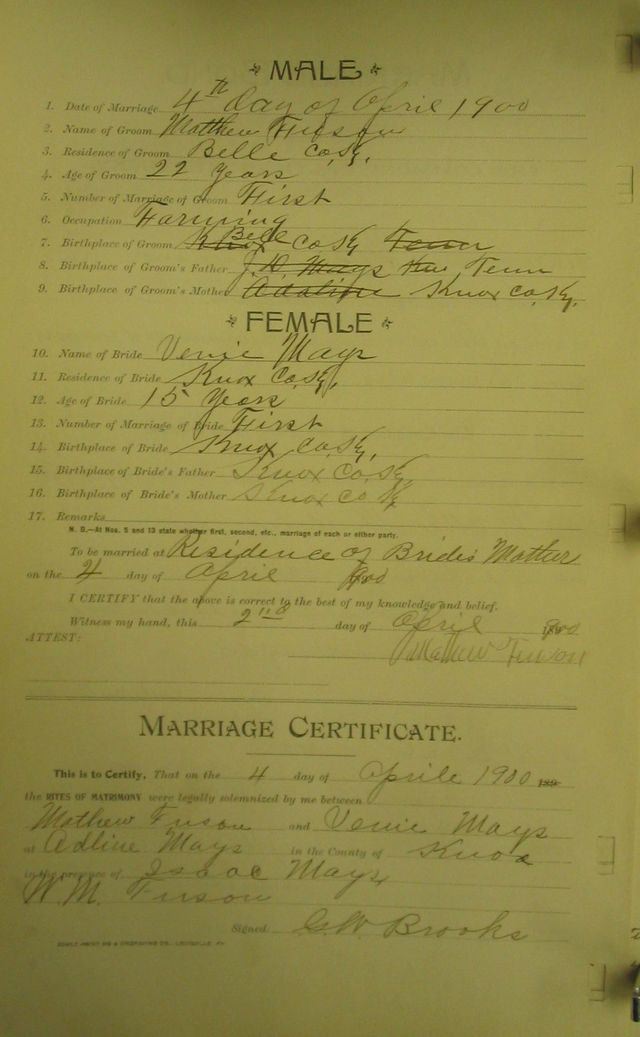 MALE
1. Date of Marriage 4th day of April 1900
2. Name of Groom Matthew Fuson
3. Residence of Groom Belle Co, Ky.
4. Age of Groom 22 Years
5. Number of Marriage of Groom First
6. Occupation Farming
7. Birthplace of Groom Knox Bell Co Ky Tenn
8. Birthplace of Groom's Father J. D. Mays Tenn
9. Birthplace of Groom's Mother Adaline Knox Co, Ky.
FEMALE
10. Name of Bride Venie Mays
11. Residence of Bride Knox Co, Ky,
12. Age of Bride 15 Years
13. Number of Marriage of Bride First
14. Birthplace of Bride Knox Co, Ky,
15. Birthplace of Bride's Father Knox Co, Ky,
16. Birthplace of Bride's Mother Knox Co Ky
17. Remarks
N. B.—At Nos. 5 and 13 state whether first, second, etc., marriage of each or either party.
To be married at Residence of Brides Mother
on the 4 day of April 1900
I CERTIFY that the above is correct to the best of my knowledge and belief.
Witness my hand, this 2nd day of April 1900
ATTEST:
Mathew Fuson
MARRIAGE CERTIFICATE.
This is to Certify, That on the 4 day of Aprile 1900 189
the RITES OF MATRIMONY were legally solemnized by me between
Mathew Fuson and Venie Mays
at Adline Mays in the County of Knox
in the presence of Isaac Mays
W. M. Fuson
Signed G. W. Brooks